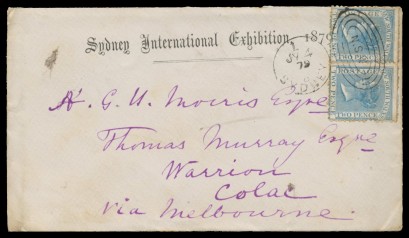 Sydney International Exhibition, 1879
A. G. U. Morris Esqre
Thomas Murray Esqre
Warrion
Colac
via Melbourne.
POSTAGE
TWO PENCE
POSTAGE
TWO PENCE
NSW
SYDNEY
79